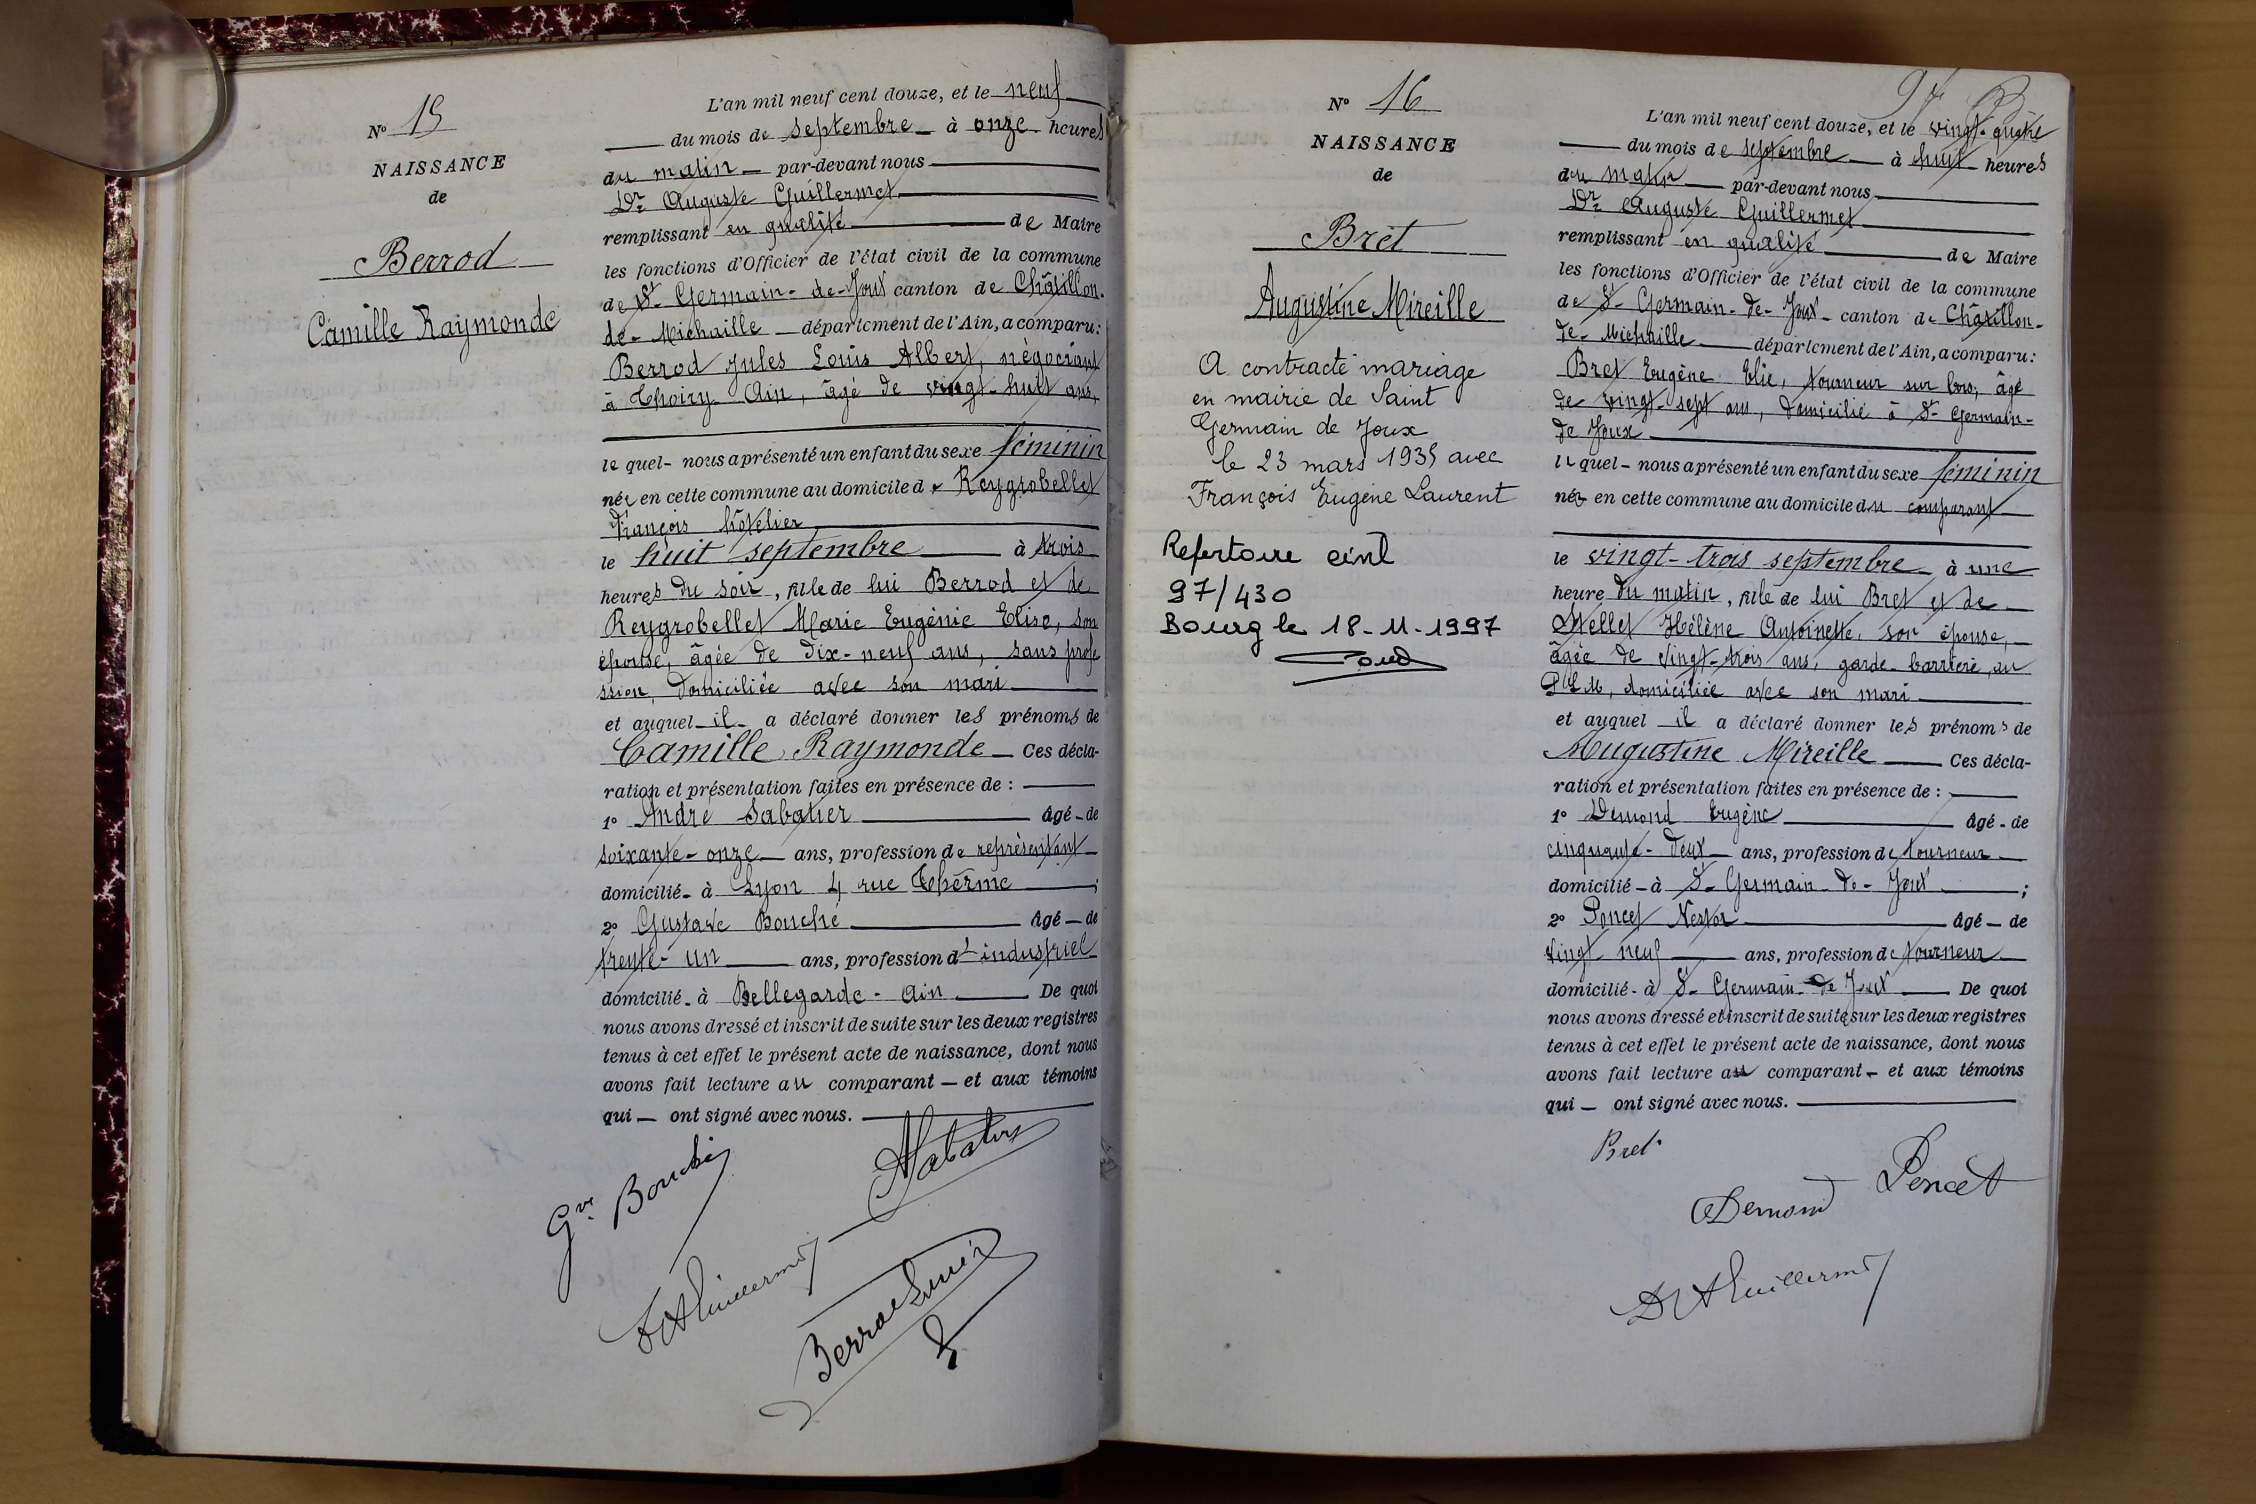 Nº 15
NAISSANCE
de
Berrod
Camille Raymonde
L'an mil neuf cent douze, et le neuf
du mois de septembre à onze heures
du matin par-devant nous
Dr Auguste Guillermet
remplissant en qualité de Maire
les fonctions d'Officier de l'état civil de la commune
de St-Germain-de-Joux canton de Châtillon-
de-Michaille département de l'Ain, a comparu:
Berrod Jules Louis Albert, négociant
à Thoiry Ain, âgé de vingt-huit ans,
le quel- nous a présenté un enfant du sexe féminin
née en cette commune au domicile de Reygrobellet
François hôtelier
le huit septembre à trois
heures du soir, fille de lui Berrod et de
Reygrobellet Marie Eugénie Elise, son
épouse, âgée de dix-neuf ans, sans profe
ssion, domiciliée avec son mari
et auquel il a déclaré donner les prénoms de
Camille Raymonde Ces décla-
ration et présentation faites en présence de :
1º André Sabatier âgé-de
soixante-onze ans, profession de représentant
domicilié- à Lyon 4 rue Therme ;
2º Gustave Bouché âgé-de
trente-un ans, profession d'industriel
domicilié- à Bellegarde-Ain De quoi
nous avons dressé et inscrit de suite sur les deux registres
tenus à cet effet le présent acte de naissance, dont nous
avons fait lecture au comparant - et aux témoins
qui - ont signé avec nous.
Gve Bouché
ASabatier
DrAGuillermet
Berrod
97
Nº 16
NAISSANCE
de
Bret
Augustine Mireille
A contracté mariage
en mairie de Saint
Germain de Joux
le 23 mars 1935 avec
François Eugène Laurent
Repertoire civil
97/430
Bourg le 18-11-1997
L'an mil neuf cent douze, et le vingt-quatre
du mois de septembre à huit heures
du matin par-devant nous
Dr Auguste Guillermet
remplissant en qualité de Maire
les fonctions d'Officier de l'état civil de la commune
de St-Germain-de-Joux- canton de Châtillon-
de-Michaille département de l'Ain, a comparu:
Bret Eugène Elie, tourneur sur bois, âgé
de vingt-sept ans, domicilié à St-Germain-
de Joux
le quel- nous a présenté un enfant du sexe féminin
née en cette commune au domicile du comparant
le vingt-trois septembre à une
heure du matin, fille de lui Bret et de
Mellet Hélène Antoinette, son épouse,
âgée de vingt-trois ans, garde-barrière, au
PLM, domiciliée avec son mari
et auquel il a déclaré donner les prénoms de
Augustine Mireille Ces décla-
ration et présentation faites en présence de :
1º Demond Eugène âgé-de
cinquante-deux ans, profession de tourneur
domicilié-à St-Germain-de-Joux ;
2º Poncet Nestor âgé-de
vingt neuf ans, profession de tourneur
domicilié-à St-Germain-de Joux De quoi
nous avons dressé et inscrit de suite sur les deux registres
tenus à cet effet le présent acte de naissance, dont nous
avons fait lecture au comparant - et aux témoins
qui - ont signé avec nous.
Bret
Poncet
Demond
DrAGuillermet